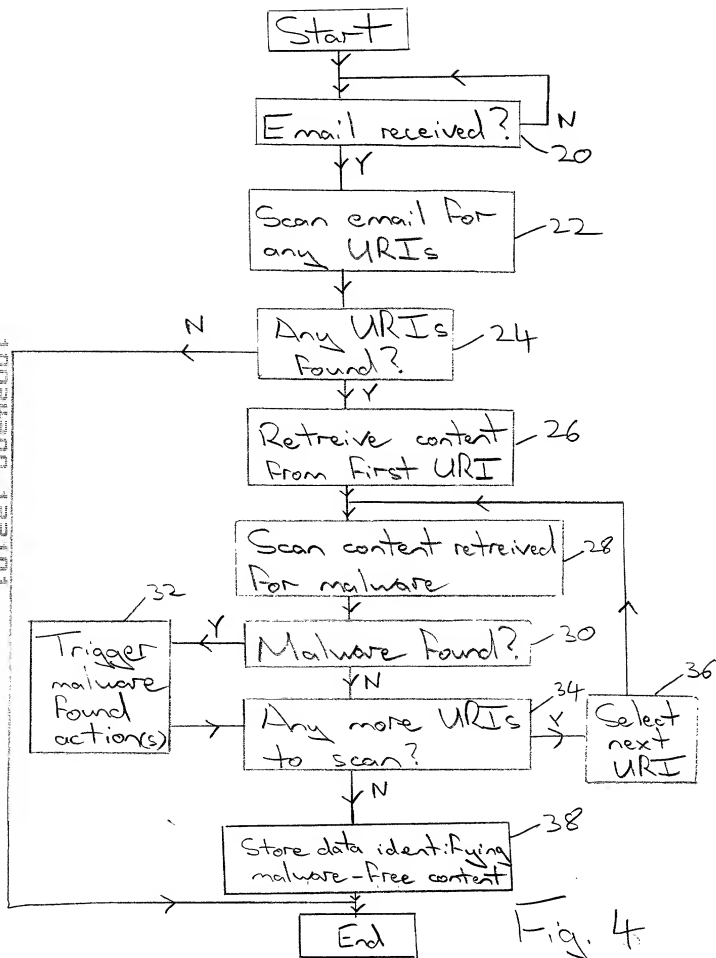 Start
Email received?
N
20
Y
Scan email for
any URIs
22
N
Any URIs
found?
24
Y
Retreive content
from first URI
26
Scan content retreived
for malware
28
32
Y
Malware found?
30
Trigger
malware
found
action(s)
N
34
36
Any more URIs
to scan?
Y
Select
next
URI
N
38
Store data identifying
malware-free content
End
Fig. 4